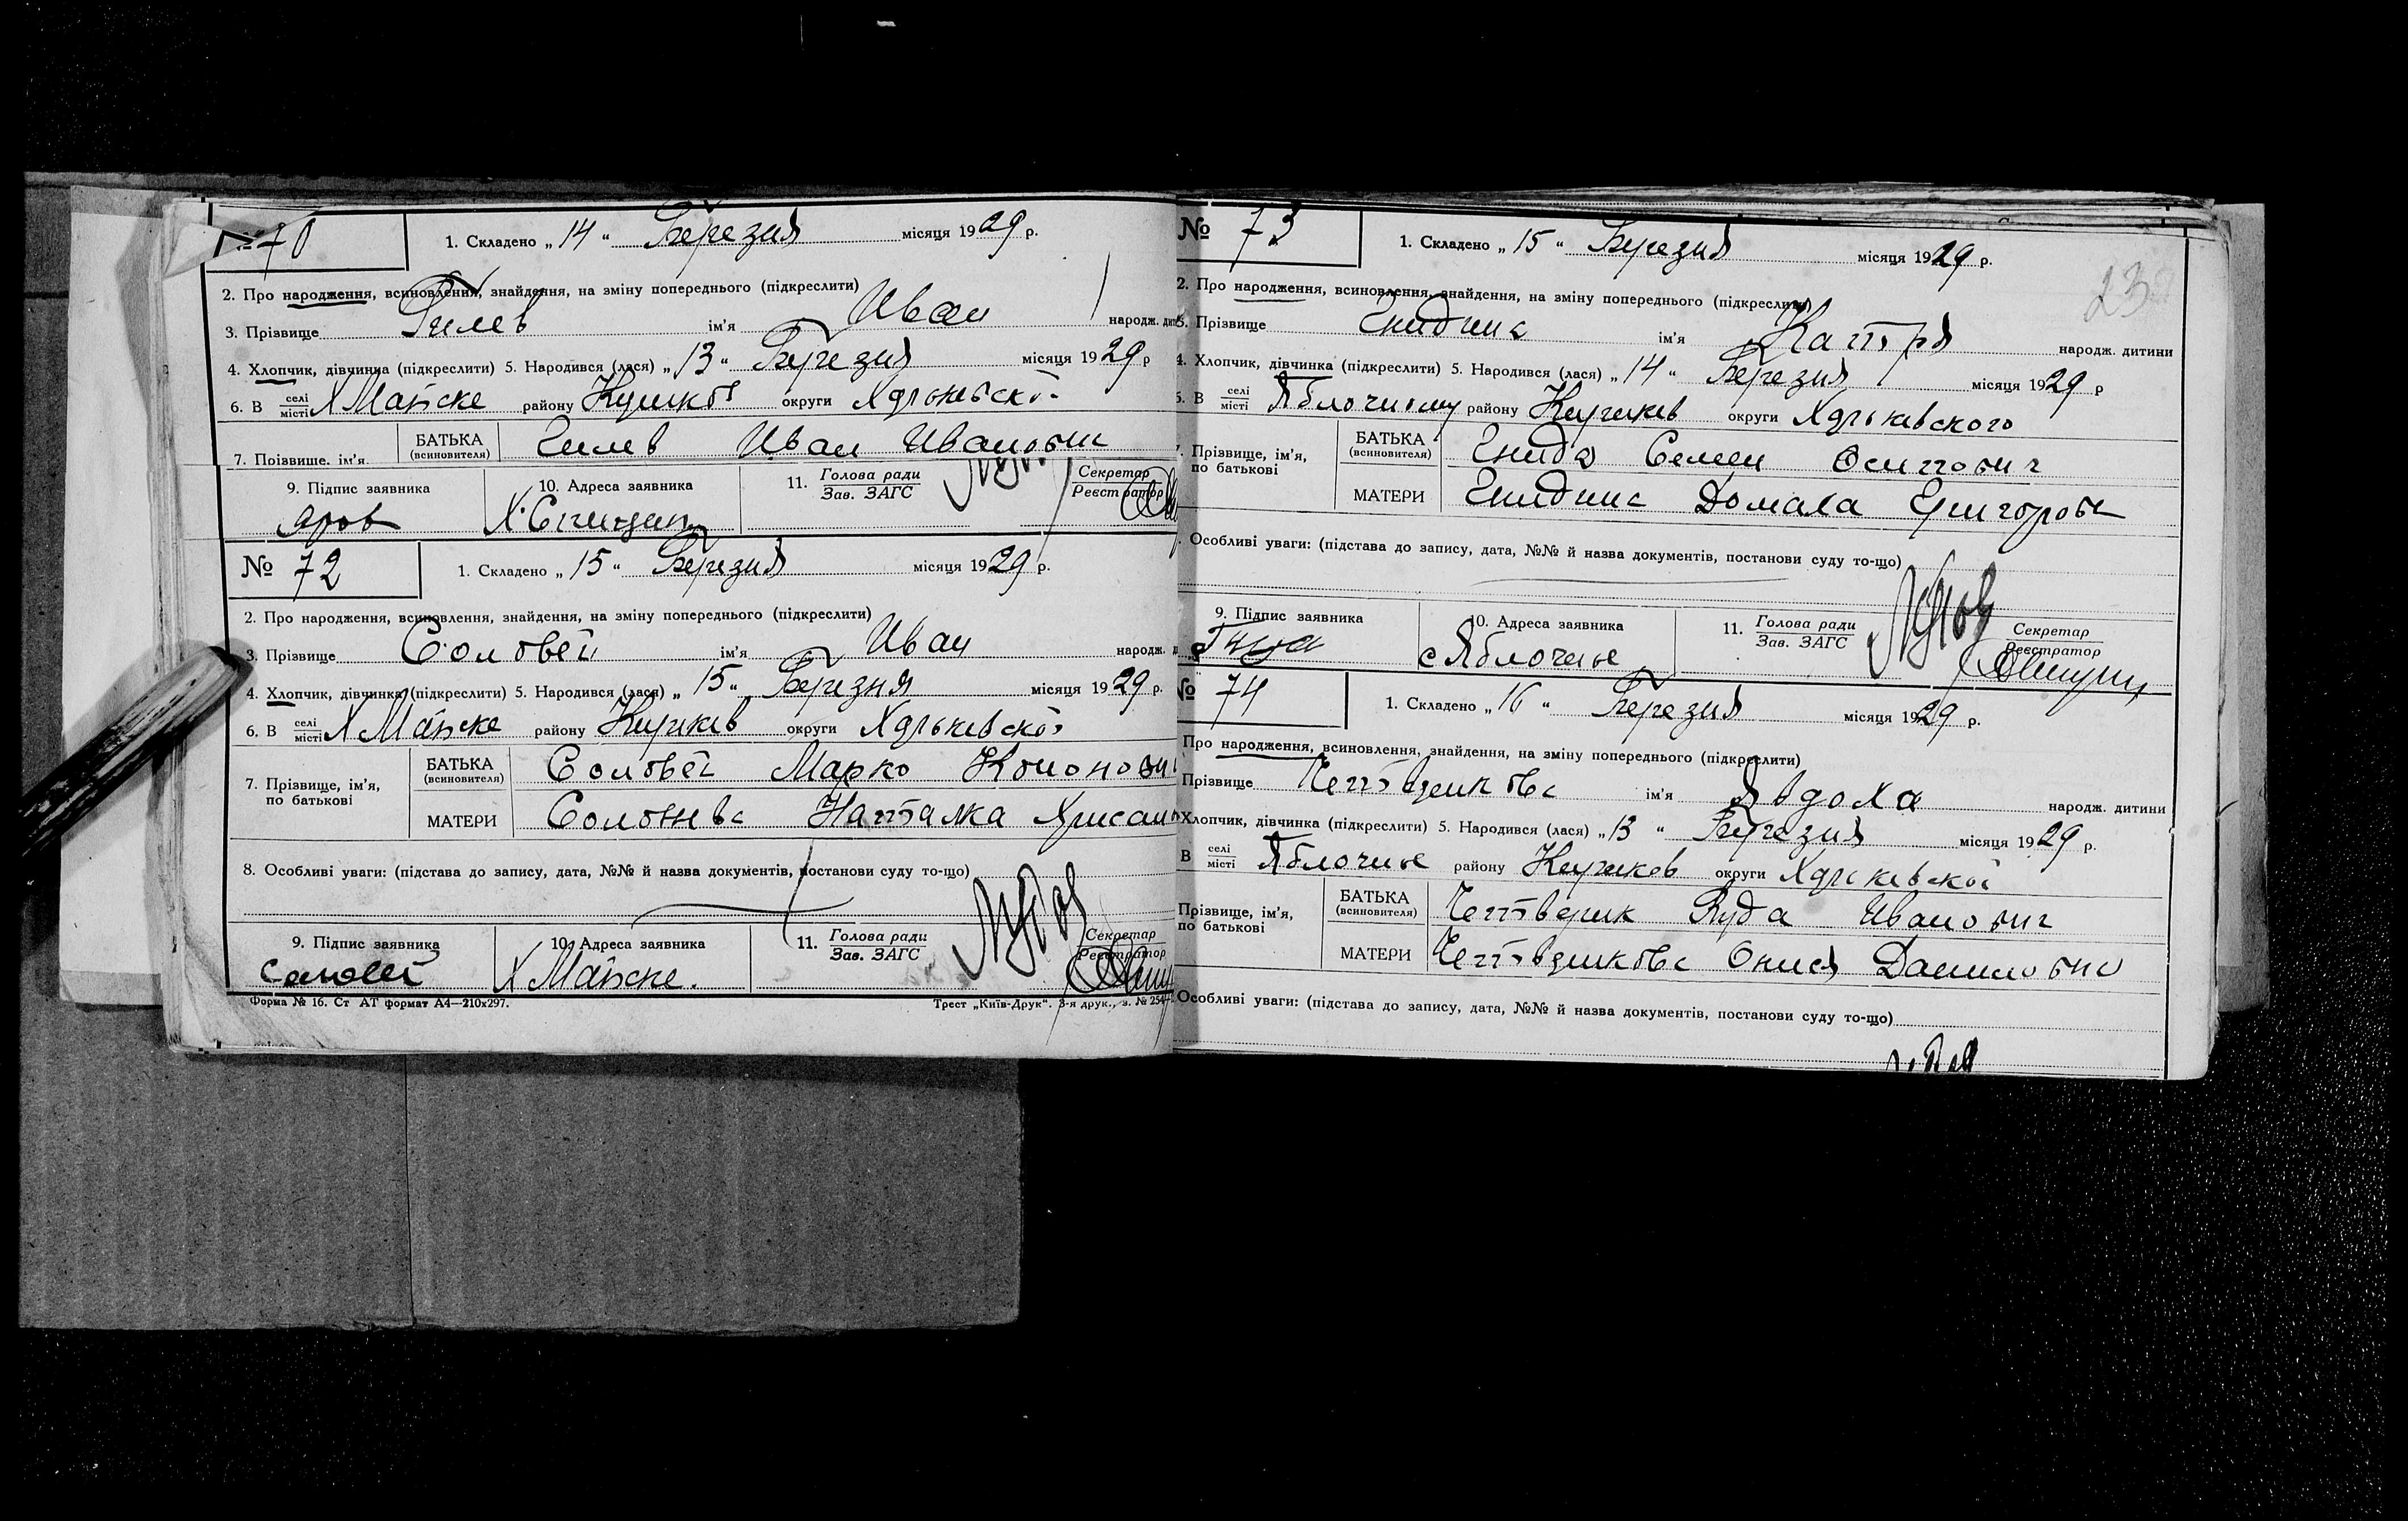 № 70
1. Складено „ 14 “ Березня місяця 1929 р.
2. Про народження, всиновлення, знайдення, на зміну попереднього (підкреслити)
3. Прізвище ім'я Иван народж.
4. Хлопчик, дівчинка (підкреслити) 5. Народився (лася) „ 13 “ Березня місяця 1929 р
6. В селі місті Х Майске району округи Харьківской
БАТЬКА (всиновителя) Иван Иванович
7. Прізвище, ім'я.
9. Підпис заявника 10. Адреса заявника 11. Голова ради Зав. ЗАГС Секретар Реєстратор
№ 72
1. Складено „ 15 “ Березня місяця 1929 р.
2. Про народження, всиновлення, знайдення, на зміну попереднього (підкреслити)
3. Прізвище Соловей ім'я Иван народж.
4. Хлопчик, дівчинка (підкреслити) 5. Народився (лася) „ 15 “ Березня місяця 1929 р.
6. В селі місті Х Майске району округи Харьківской
7. Прізвище, ім'я, по батькові
БАТЬКА (всиновителя) Соловей Марко Кононович
МАТЕРИ Наталка
8. Особливі уваги: (підстава до запису, дата, №№ й назва документів, постанови суду то-що)
9. Підпис заявника 10. Адреса заявника 11. Голова ради Зав. ЗАГС Секретар Реєстратор
Соловей Х Майске.
Форма № 16. Ст АТ формат А4—210х297. Трест „Київ-Друк“. 3-я друк., з. № 254
23
№ 73
1. Складено „ 15 “ Березня місяця 1929 р.
2. Про народження, всиновлення, знайдення, на зміну попереднього (підкреслити)
3. Прізвище ім'я Катря народж. дитини
4. Хлопчик, дівчинка (підкреслити) 5. Народився (лася) „ 14 “ Березня місяця 1929 р
6. В селі місті Яблочному району округи Харьківского
7. Прізвище, ім'я, по батькові
БАТЬКА (всиновителя) Семен Осипович
МАТЕРИ Домаха
Особливі уваги: (підстава до запису, дата, №№ й назва документів, постанови суду то-що)
9. Підпис заявника 10. Адреса заявника 11. Голова ради Зав. ЗАГС Секретар Реєстратор
с Яблочне
№ 74
1. Складено „ 16 “ Березня місяця 1929 р.
Про народження, всиновлення, знайдення, на зміну попереднього (підкреслити)
Прізвище Четверикова ім'я Явдоха народж. дитини
Хлопчик, дівчинка (підкреслити) 5. Народився (лася) „ 13 “ Березня місяця 1929 р.
В селі місті Яблочне району округи Харьківской
Прізвище, ім'я, по батькові
БАТЬКА (всиновителя) Четверик Иванович
МАТЕРИ Четверикова
Особливі уваги: (підстава до запису, дата, №№ й назва документів, постанови суду то-що)